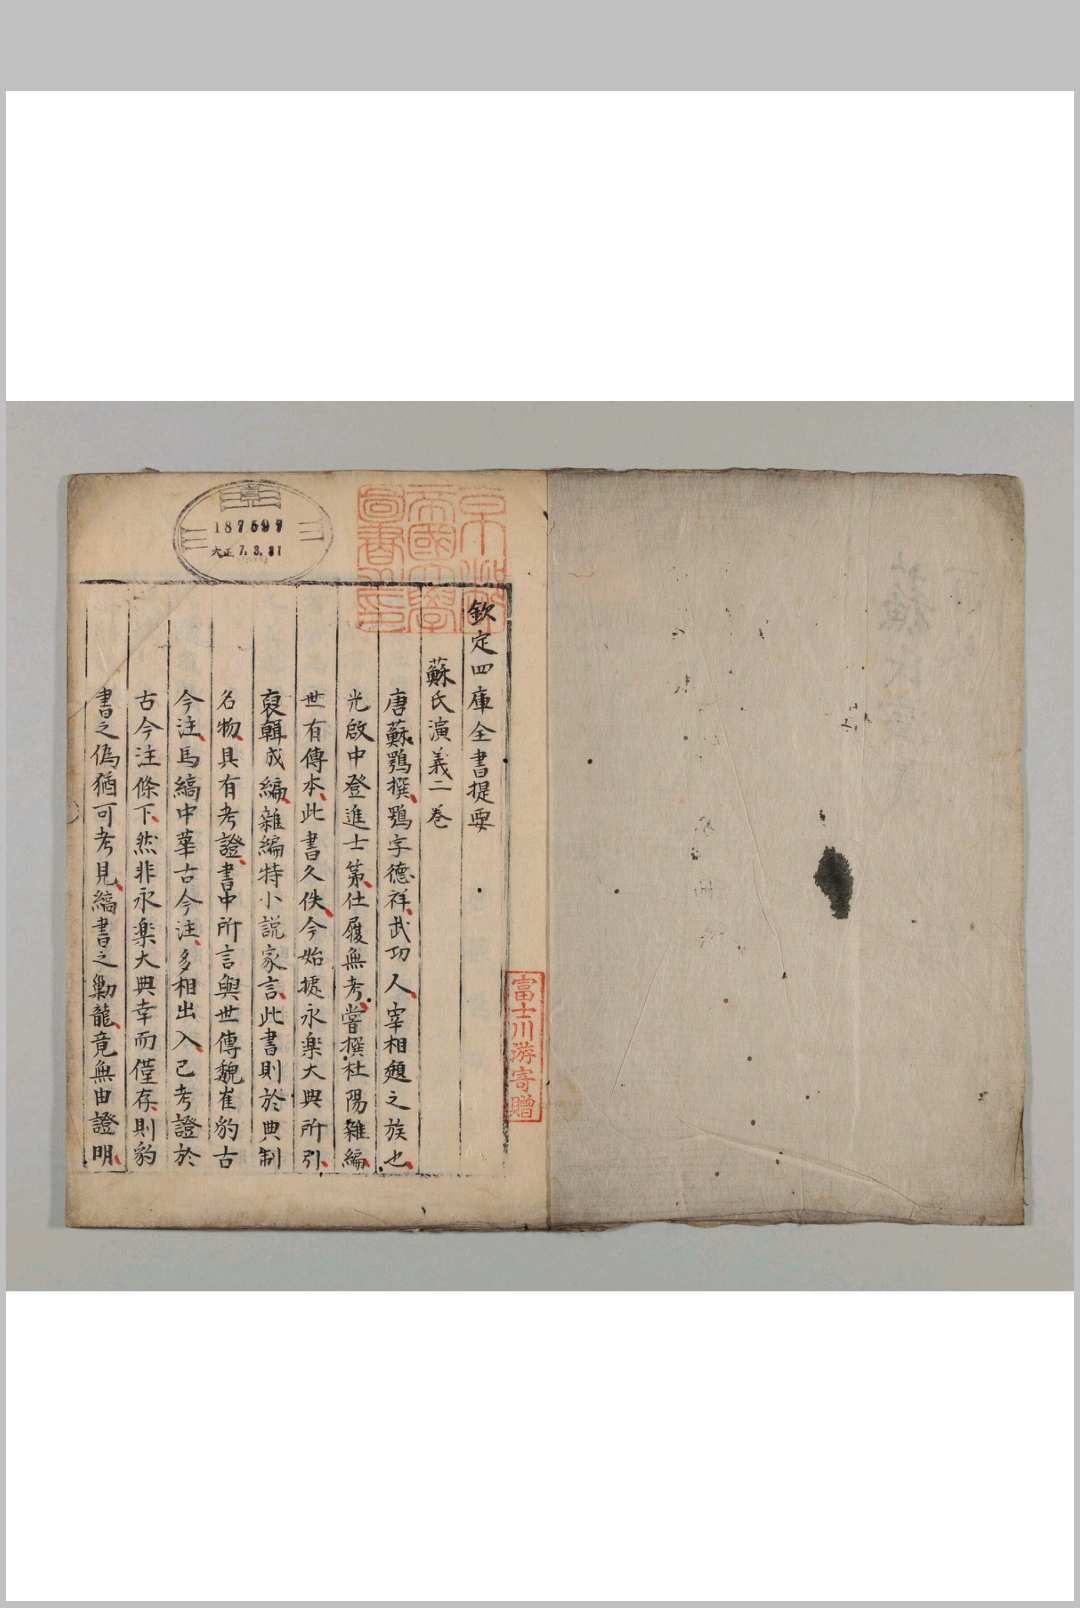 欽定四庫全書提要
蘇氏演義二卷
唐蘇鶚撰鶚字德祥武功人宰相頲之族也
光啟中登進士第仕履無考嘗撰杜陽雜編
世有傳本此書久佚今始據永樂大典所引
裒輯成編雜編特小說家言此書則於典制
名物具有考證書中所言與世傳魏崔豹古
今注馬縞中華古今注多相出入已考證於
古今注條下然非永樂大典幸而僅存則豹
書之偽猶可考見縞書之勦龍竟無由證明
富士川游寄贈
京都帝國大學圖書之印
187597
大正 7.3.31